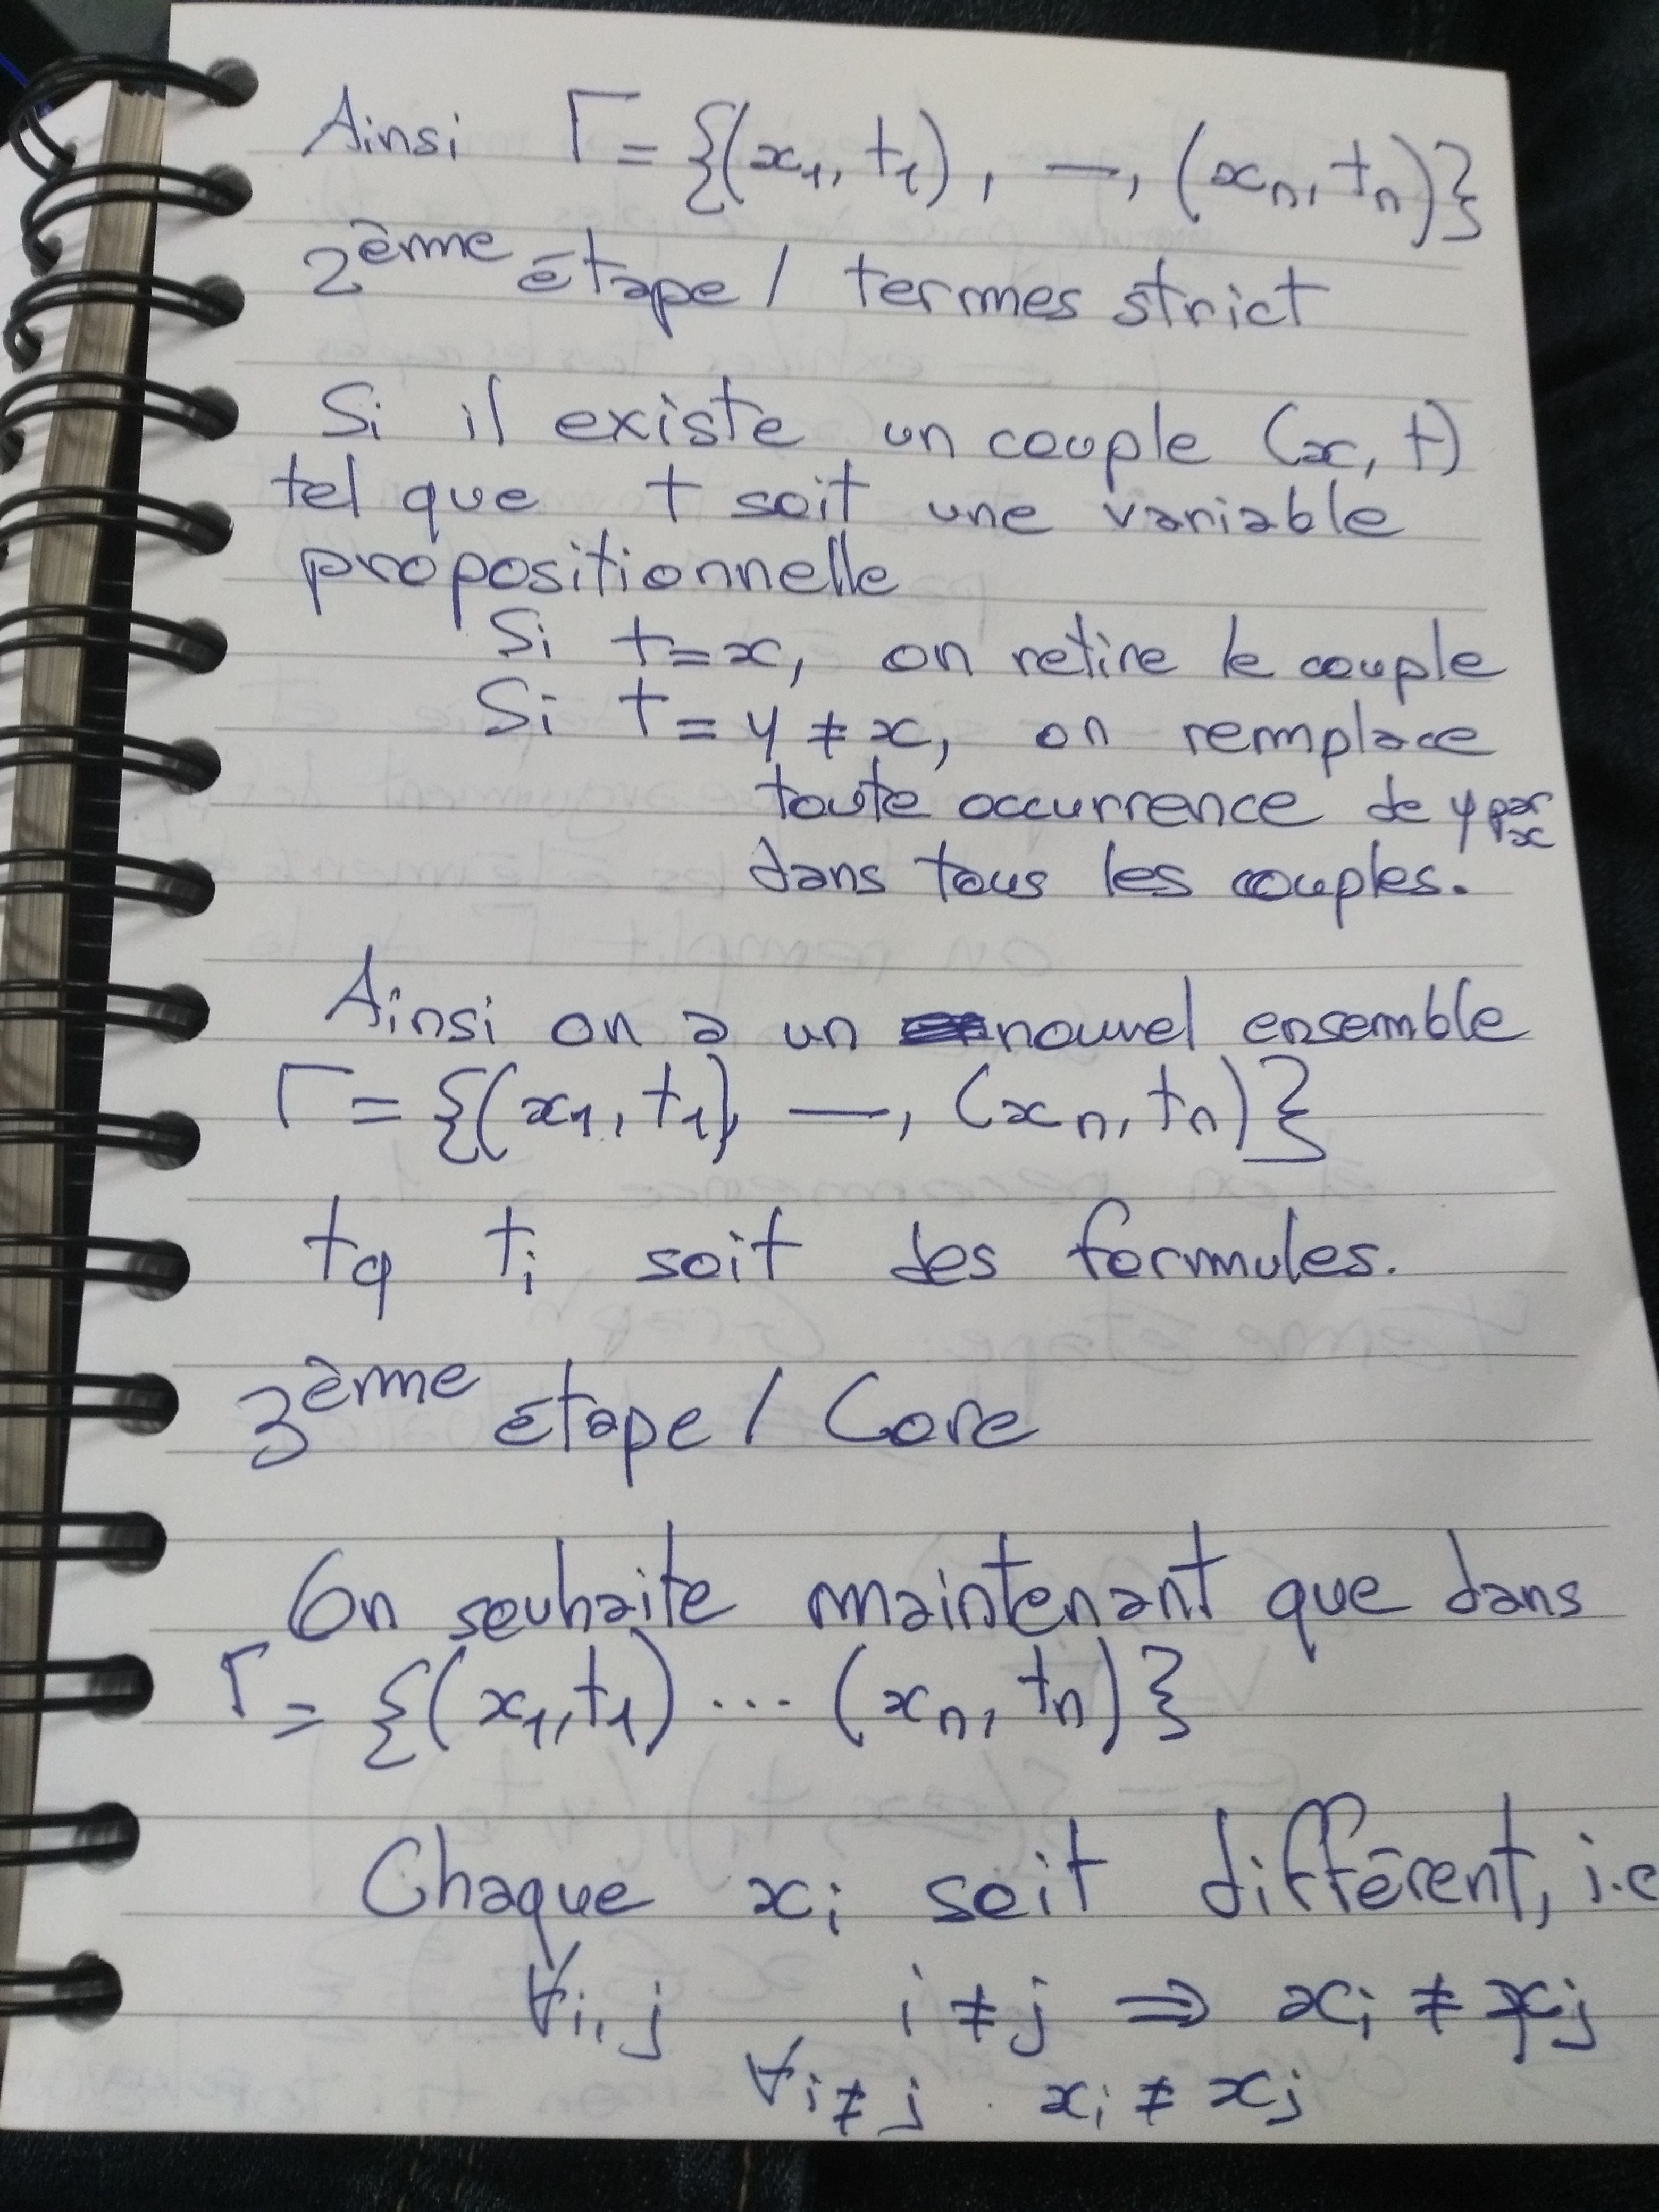 Ainsi Γ = {(x₁, t₁), —, (xₙ, tₙ)}
2ème étape / termes strict
Si il existe un couple (x, t)
tel que t soit une variable
propositionnelle
Si t = x, on retire le couple
Si t = y ≠ x, on remplace
toute occurrence de y par x
dans tous les couples.
Ainsi on a un nouvel ensemble
Γ = {(x₁, t₁), —, (xₙ, tₙ)}
tq tᵢ soit des formules.
3ème étape / Core
On souhaite maintenant que dans
Γ = {(x₁, t₁) ... (xₙ, tₙ)}
Chaque xᵢ soit différent, i.e
∀i, j i ≠ j ⇒ xᵢ ≠ xⱼ
∀i ≠ j . xᵢ ≠ xⱼ